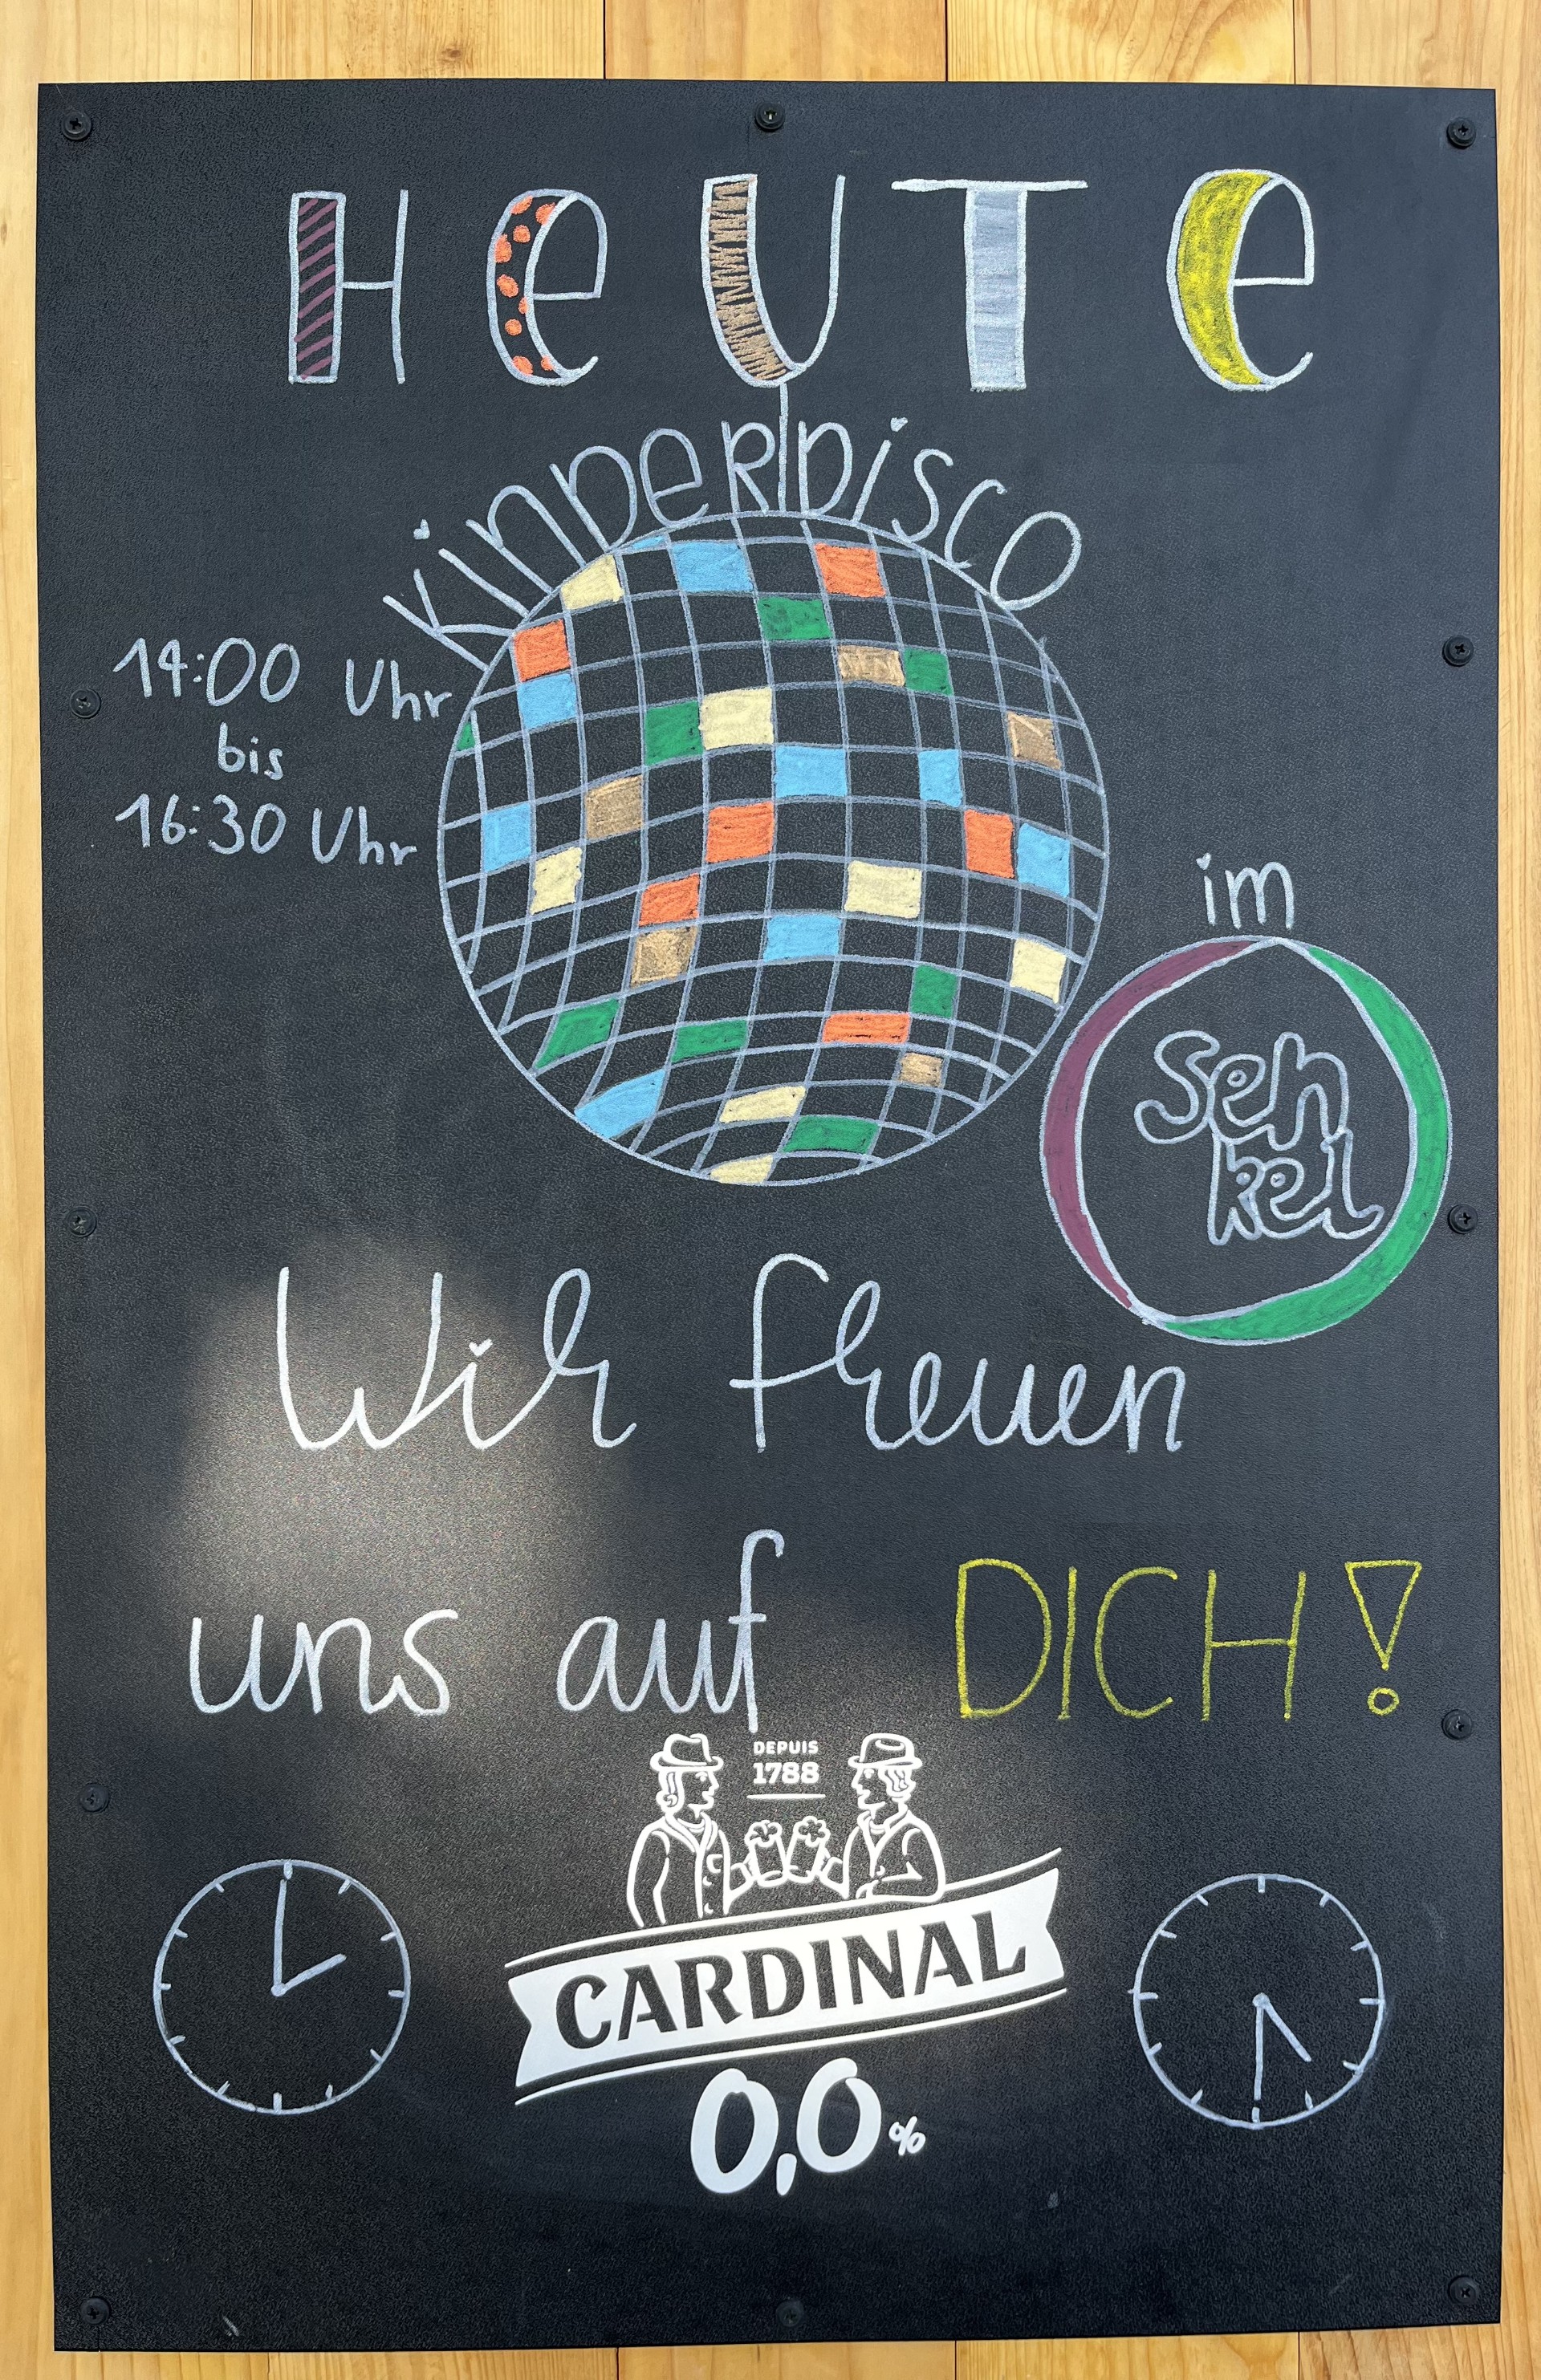 HeUTe
KinDerDisco
14:00 Uhr
bis
16:30 Uhr
im
Sen
kel
Wir freuen
uns auf DICH!
DEPUIS
1788
CARDINAL
0,0%